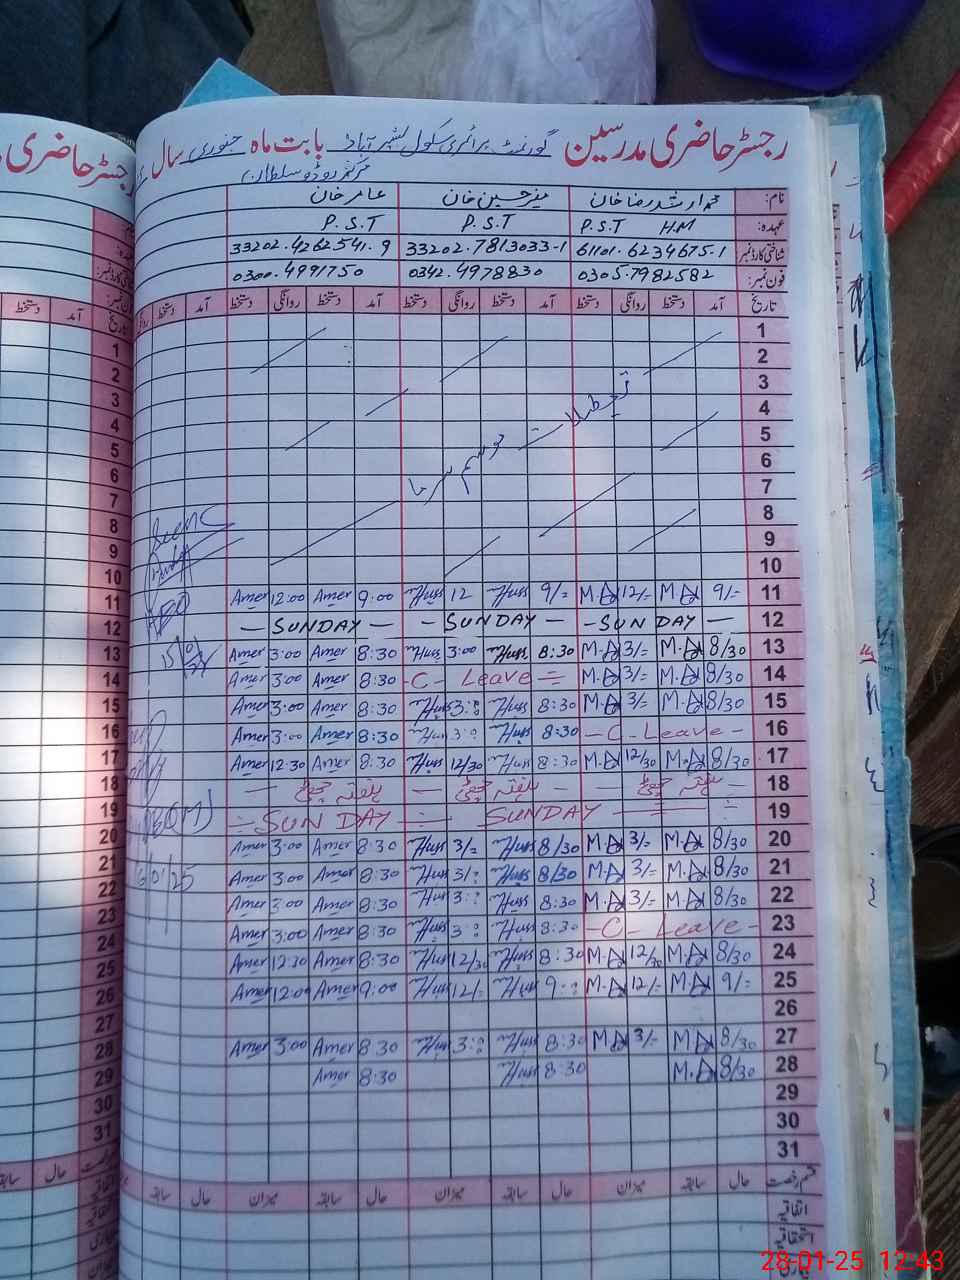 رجسٹر حاضری مدرسین گورنمنٹ پرائمری سکول بشیر آباد بابت ماہ جنوری سال
مرکز روڈو سلطان
نام: محمد ارشد رضا خان منیر حسین خان عامر خان
عہدہ: P.S.T HM P.S.T P.S.T
شناختی کارڈ نمبر 61101.6234675.1 33202.7813033-1 33202.4262541.9
فون نمبر: 0305.7982582 0342.4978830 0300.4991750
تاریخ آمد دستخط روانگی دستخط آمد دستخط روانگی دستخط آمد دستخط روانگی دستخط آمد دستخط
1
2
3
4
5
6
7
8
9
10
تعطیلات موسم سرما
Amer 12:00 Amer 9:00 Huss 12 Huss 9/= M.A 12/= M.A 9/- 11
— SUNDAY — — SUNDAY — — SUNDAY — 12
Amer 3:00 Amer 8:30 Huss 3:00 Huss 8:30 M.A 3/= M.A 8/30 13
Amer 3:00 Amer 8:30 -C- Leave = M.A 3/= M.A 8/30 14
Amer 3:00 Amer 8:30 Huss 3:: Huss 8:30 M.A 3/= M.A 8/30 15
Amer 3:00 Amer 8:30 Huss 3:: Huss 8:30 -C-Leave- 16
Amer 12:30 Amer 8:30 Huss 12/30 Huss 8:30 M.A 12/30 M.A 8/30 17
— ہفتہ چھٹی — ہفتہ چھٹی — ہفتہ چھٹی — 18
SUNDAY SUNDAY 19
Amer 3:00 Amer 8:30 Huss 3/= Huss 8/30 M.A 3/= M.A 8/30 20
Amer 3:00 Amer 8:30 Huss 3/: Huss 8/30 M.A 3/= M.A 8/30 21
Amer 3:00 Amer 8:30 Huss 3:: Huss 8:30 M.A 3/= M.A 8/30 22
Amer 3:00 Amer 8:30 Huss 3:: Huss 8:30 -C- Leave - 23
Amer 12:30 Amer 8:30 Huss 12/30 Huss 8:30 M.A 12/30 M.A 8/30 24
Amer 12:00 Amer 9:00 Huss 12/= Huss 9:: M.A 12/= M.A 9/- 25
26
Amer 3:00 Amer 8:30 Huss 3:: Huss 8:30 M.A 3/= M.A 8/30 27
Amer 8:30 Huss 8:30 M.A 8/30 28
29
30
31
قسم رخصت حال سابقہ میزان حال سابقہ میزان حال سابقہ میزان حال سابقہ
اتفاقیہ
استحقاقیہ
رجسٹر حاضری
تاریخ آمد دستخط
1
2
3
4
5
6
7
8
9
10
11
12
13
14
15
16
17
18
19
20
21
22
23
24
25
26
27
28
29
30
31
حال سابقہ
28-01-25 12:43